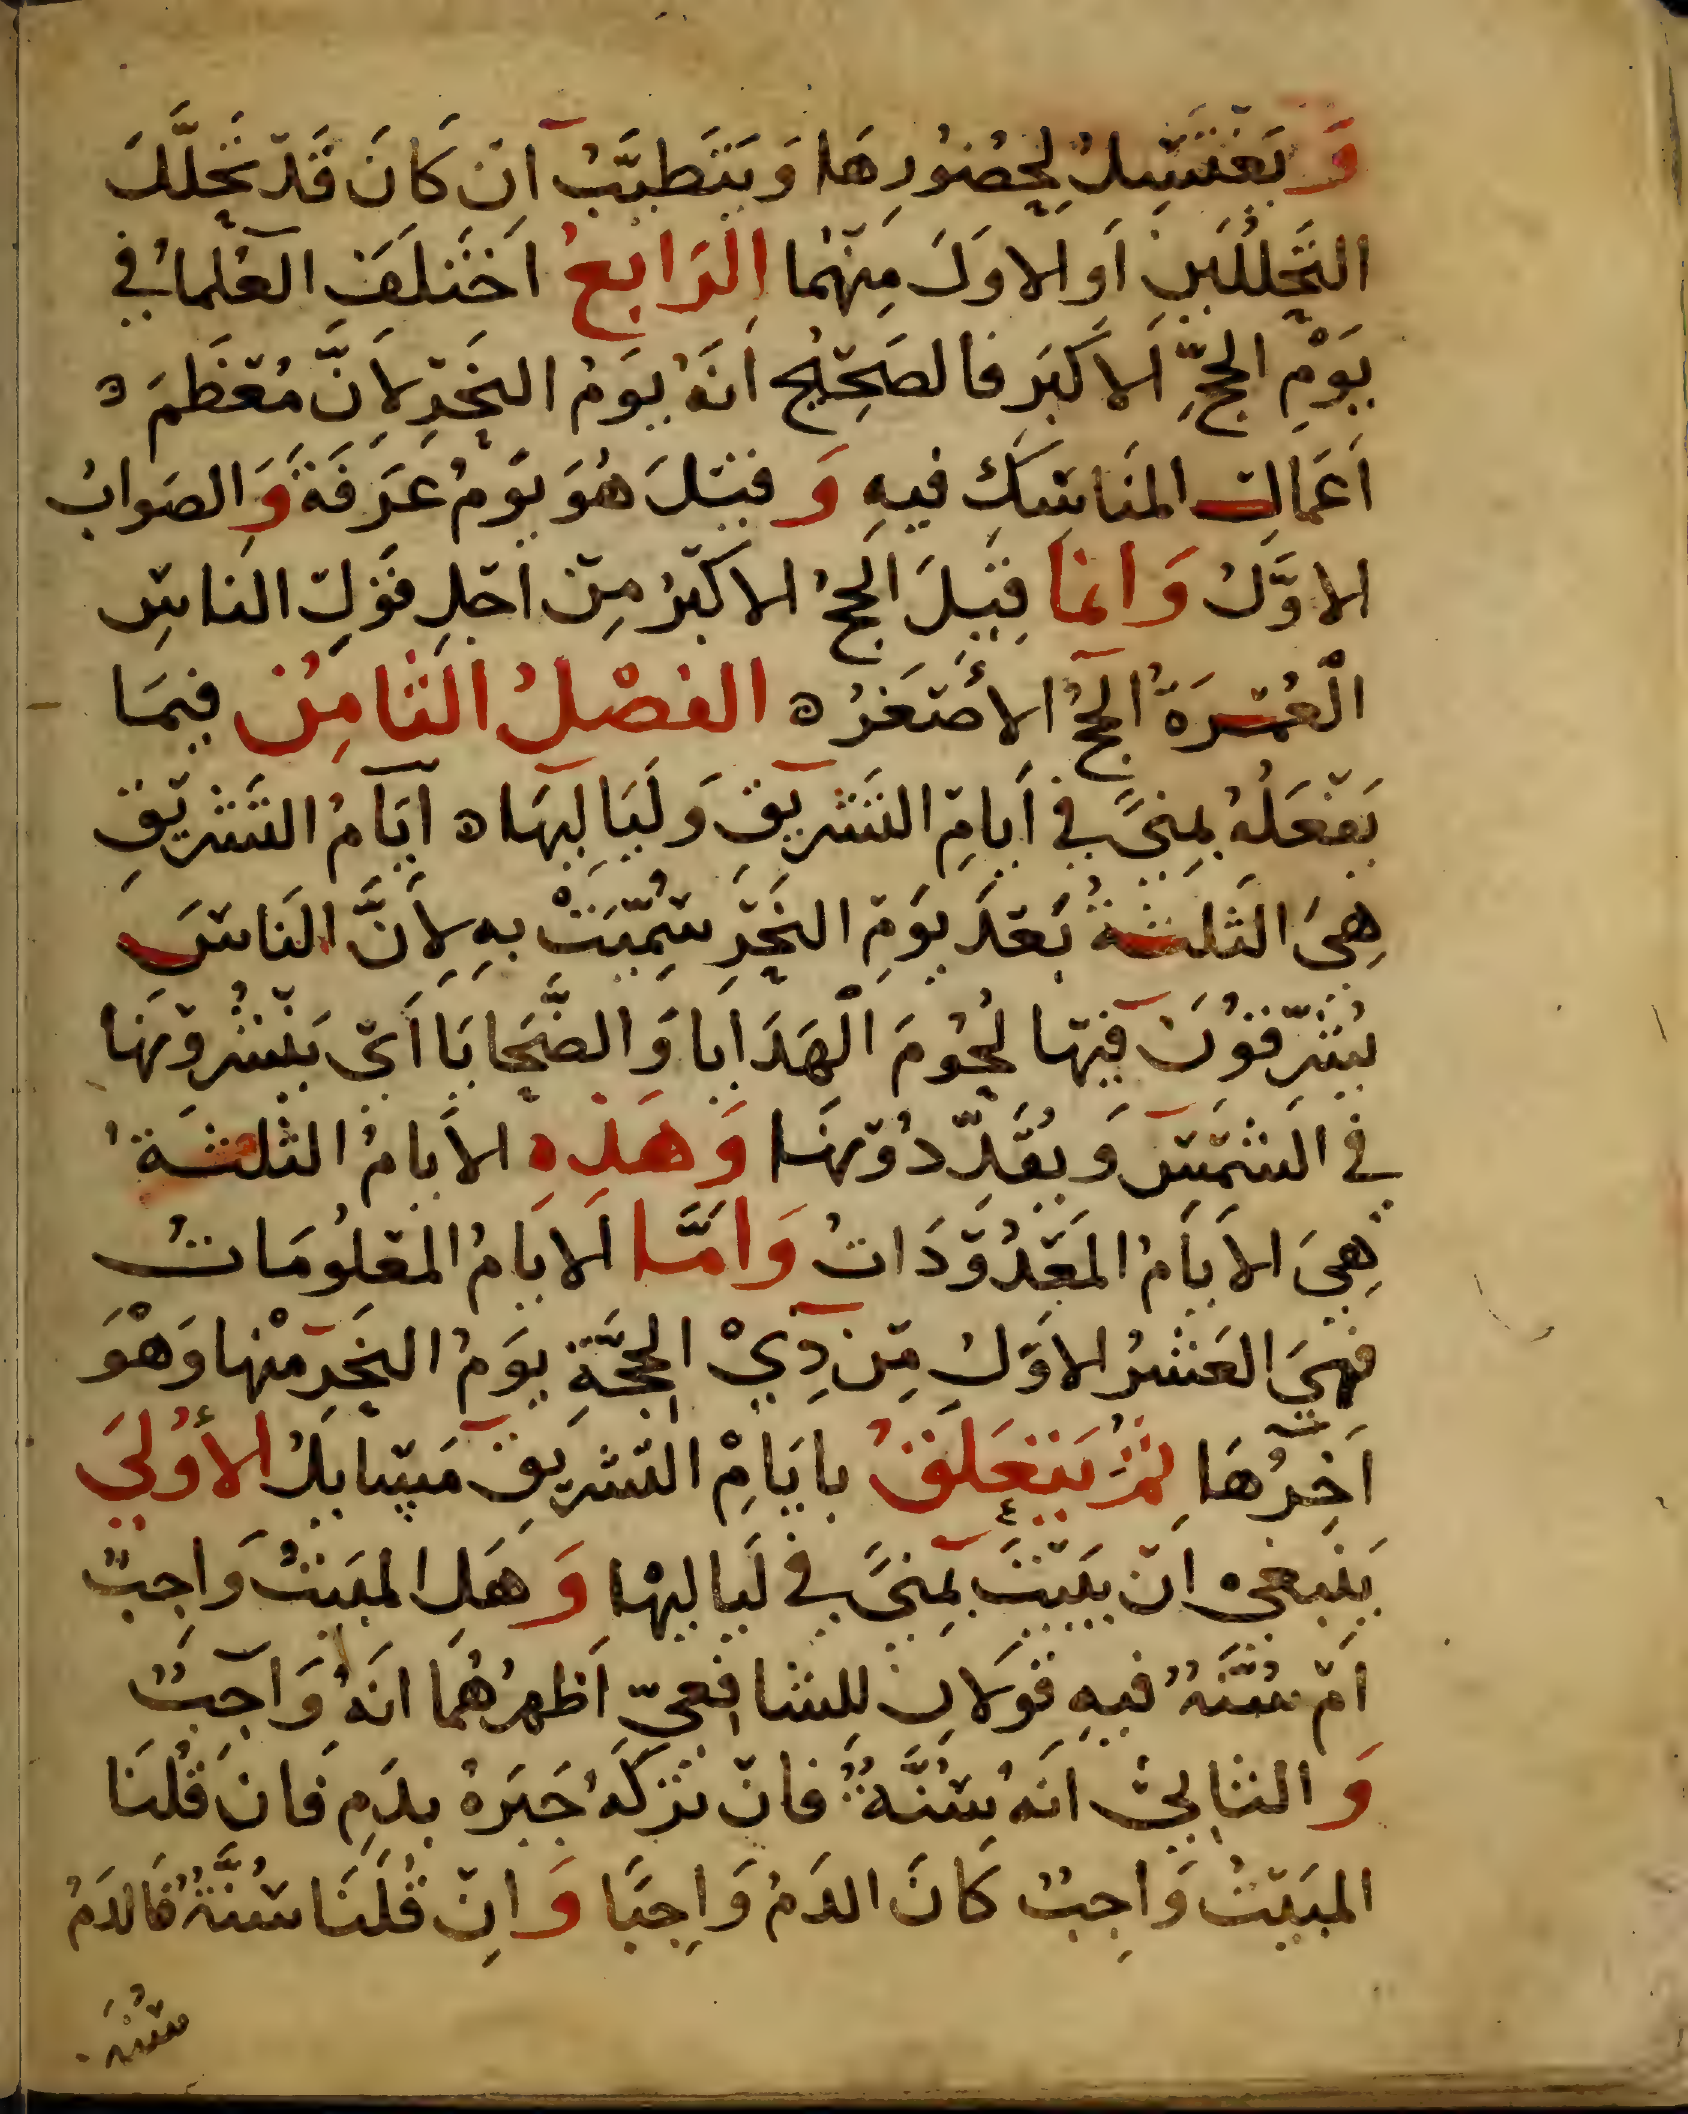 وَيَغْتَسِلُ لِحُضُورِهَا وَيَتَطيَّبُ اِنْ كَانَ قَدْ تَحَلَّلَ
التَحَلُّلَينِ اَو الاوَلَ مِنْهُما الرَابعُ اخَتَلَفَ العُلماءُ في
يَوْمِ الحَجِّ الاكبَرِ فالصَحِيْحُ اَنهُ يَومُ النَحْرِ لاَنَّ مُعْظمَ ه
اَعمَالِ المنَاسِكِ فيهِ وَقيْلَ هُوَ يَومُ عَرَفَةَ وَالصَوابُ
الاوَّلُ وَانما قِيْلَ الحَجُ الاكبَرُ مِنْ اَجْلِ قَوْلِ الناسِ
الْعُمْرَةُ الحَجُ الأَصْغَرُ ه الفصْلُ الثامِنُ فيمَا
يَفْعَلُهُ بمِنىً في اَيامِ التَشريْقِ وَلَيَاليهَا ه اَيَامُ التَشرِيْقِ
هِيَ الثَلثةُ بَعْدَ يَومِ النَحْرِ سُمِّيَتْ بهِ لاَنَّ الناسَ
يُشرِّقُونَ فيْها لحُومَ الْهَدَايا وَالضَّحَايَا اَيْ يَنْشُروْنهَا
في الشمْسِ وَيُقَدِّدُوْنهَا وَهَذِهِ الاَيامُ الثلثةُ
هِيَ الاَيَامُ المَعْدُوْدَاتُ وَاَمَّا الاَيامُ المعْلُومَاتُ
فهيَ العَشرُ الاوَلُ مِنْ ذِيْ الحِجَّةِ يَومُ النَحْرِ مْنها وَهْوَ
اَخِرُهَا ثمَ يَتعَلقُ بايَامِ التشرِيقِ مَسَايلُ الأُوْلىَ
يَنْبغيْ اَنْ يَبيْتَ بمِنىً في لَيَاليْها وَهَل المبَيتُ وَاجِبٌ
اَمْ سُنَّةٌ فيهِ قَولاَنِ لِلشافِعيِّ اَظهرُهُمَا انَهُ وَاجِبٌ
وَالثانيْ انَهُ سُنَّةٌ فانْ تَرَكهُ جَبَرَهُ بدَمِ فَان قُلْنَا
المبَيْتُ وَاجِبٌ كَانَ الدَمُ وَاجِبًا وَاِنْ قُلْنَا سُنَّةٌ فَالدَمُ
سُنةَ